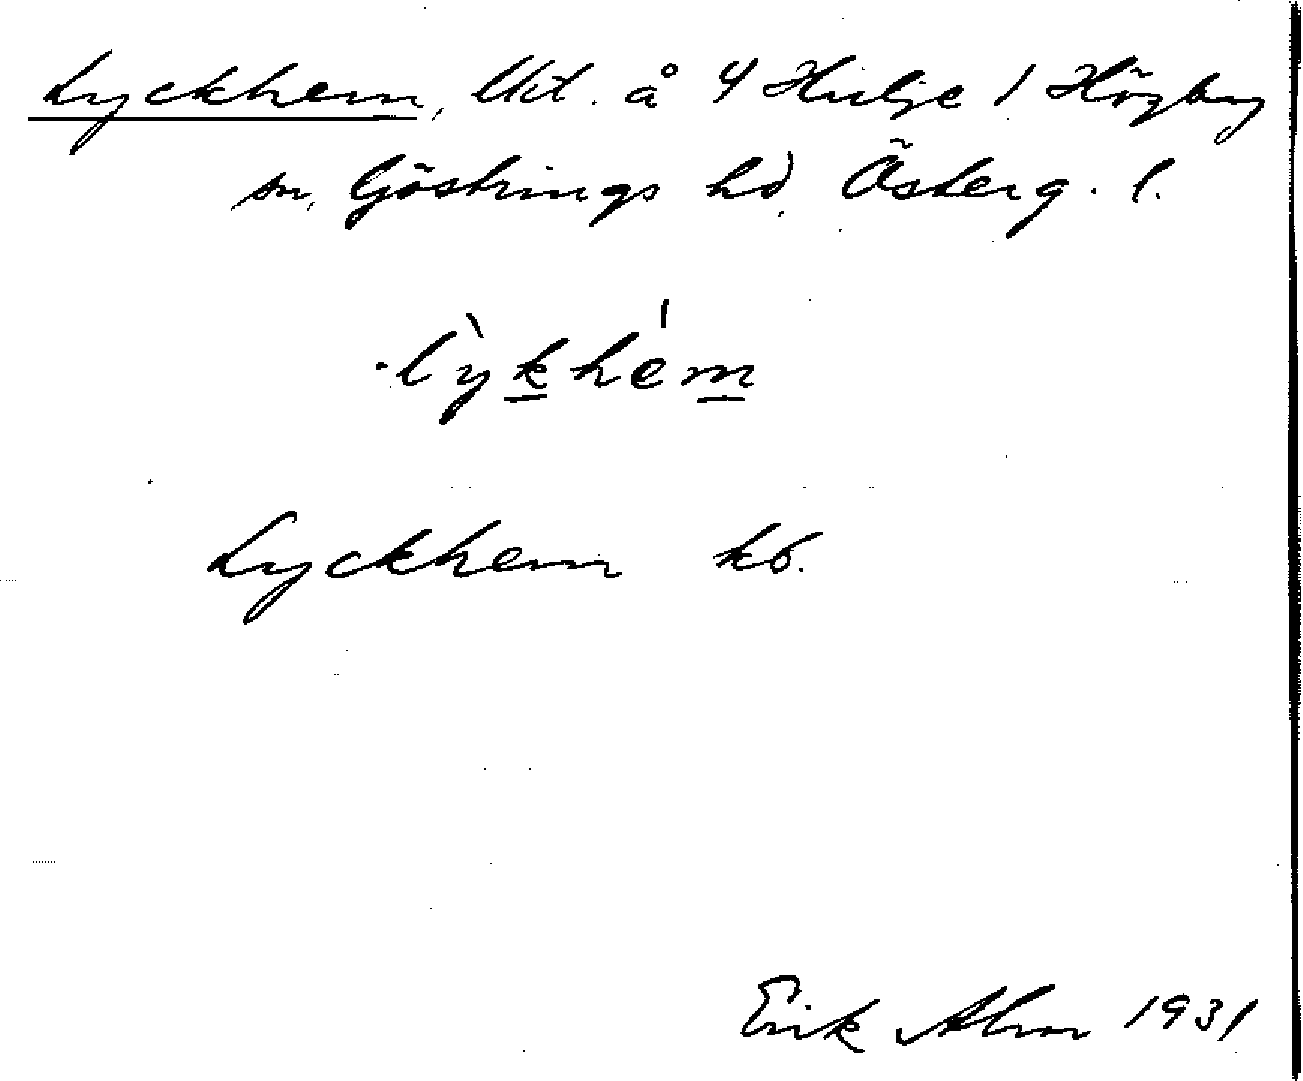 Lyckhem, Utl. å 4 Hulje / Högby
sn, Göstrings hd, Österg. l.
lỳkhém
Lyckhem kb.
Erik Alm 1931